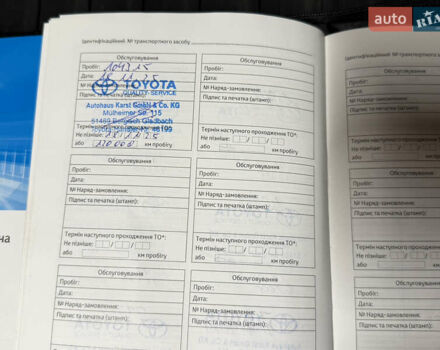 auto.RIA
Ідентифікаційний № транспортного засобу
Обслуговування
Пробіг: 104315
Дата:
№ Наряд-замовлення:
Підпис та печатка (штамп):
TOYOTA
QUALITY-SERVICE
Autohaus Karst GmbH & Co. KG
Mülheimer Str. 115
51469 Bergisch Gladbach
Термін наступного
Не пізніше:
або 120.000 км пробігу
Обслуговування
Пробіг:
Дата:
№ Наряд-замовлення:
Підпис та печатка (штамп):
Термін наступного проходження ТО*:
Не пізніше:
або км пробігу
Обслуговування
Пробіг:
Дата:
№ Наряд-замовлення:
Підпис та печатка (штамп):
Термін наступного проходження ТО*:
Не пізніше:
або км пробігу
Обслуговування
Пробіг:
Дата:
№ Наряд-замовлення:
Підпис та печатка (штамп):
Термін наступного проходження ТО*:
Не пізніше:
або км пробігу
Обслуговування
Пробіг:
Дата:
№ Наряд-замовлення:
Підпис та печатка (штамп):
Обслуговування
Пробіг:
Дата:
№ Наряд-замовлення:
Підпис та печатка (штамп):
Ідентифікаційний № транспортного
Обслуговування
Пробіг:
Дата:
№ Наряд-замовлення:
Підпис та печатка (штамп):
Термін наступного проходження
Не пізніше:
або
Обслуговування
Пробіг:
Дата:
№ Наряд-замовлення:
Підпис та печатка (штамп):
Термін наступного проходження
Не пізніше:
або
Пробіг:
Дата:
№ Наряд-замовлення:
Підпис та печатка
на